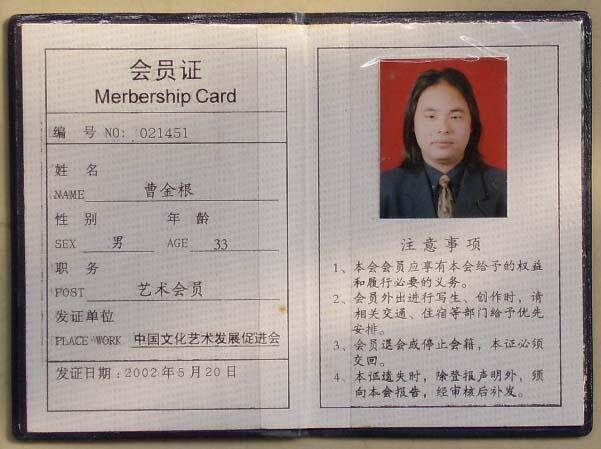 会员证
Merbership Card
编 号 NO: 021451
姓 名
NAME 曹金根
性 别 年 龄
SEX 男 AGE 33
职 务
POST 艺术会员
发证单位
PLACE WORK 中国文化艺术发展促进会
发证日期：2002年5月20日
注意事项
1、本会会员应享有本会给予的权益
和履行必要的义务。
2、会员外出进行写生、创作时，请
相关交通、住宿等部门给予优先
安排。
3、会员退会或停止会籍，本证必须
交回。
4、本证遗失时，除登报声明外，须
向本会报告，经审核后补发。